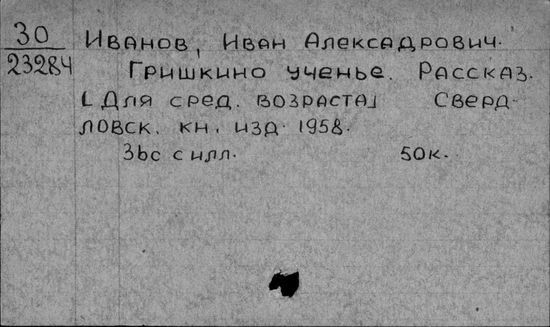 30
23284
Иванов, Иван Алексадрович.
Гришкино ученье. Рассказ.
[Для сред. возраста] Сверд-
ловск. кн. изд. 1958.
36с с илл. 50к.